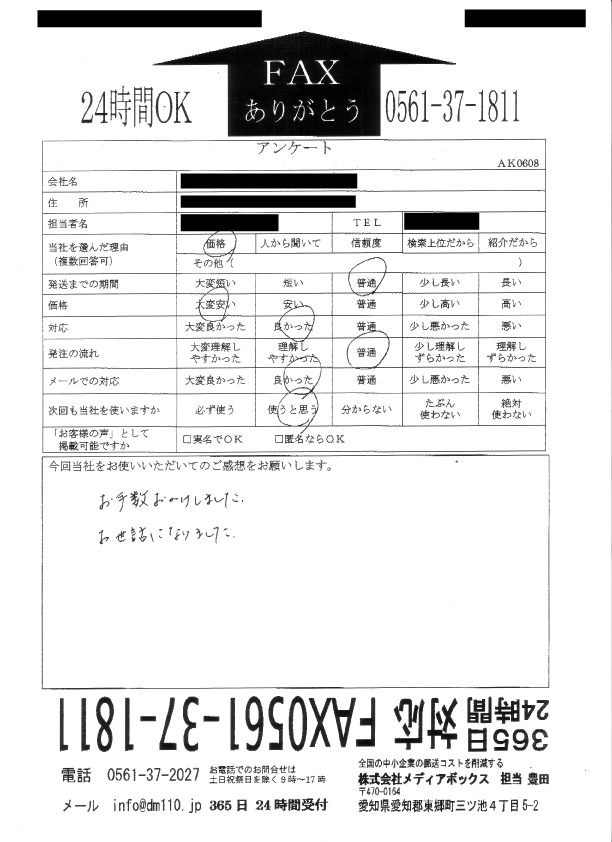 FAX
ありがとう
24時間OK
0561-37-1811
アンケート
AK0608
会社名
住 所
担当者名 TEL
当社を選んだ理由
(複数回答可)
価格 人から聞いて 信頼度 検索上位だから 紹介だから
その他 ( )
発送までの期間 大変短い 短い 普通 少し長い 長い
価格 大変安い 安い 普通 少し高い 高い
対応 大変良かった 良かった 普通 少し悪かった 悪い
発注の流れ 大変理解しやすかった 理解しやすかった 普通 少し理解しずらかった 理解しずらかった
メールでの対応 大変良かった 良かった 普通 少し悪かった 悪い
次回も当社を使いますか 必ず使う 使うと思う 分からない たぶん使わない 絶対使わない
「お客様の声」として
掲載可能ですか
□実名でOK □匿名ならOK
今回当社をお使いいただいてのご感想をお願いします。
お手数おかけしました。
お世話になりました。
365日 24時間 対応 FAX0561-37-1811
電話 0561-37-2027 お電話でのお問合せは
土日祝祭日を除く9時~17時
メール info@dm110.jp 365日 24時間受付
全国の中小企業の郵送コストを削減する
株式会社メディアボックス 担当 豊田
〒470-0164
愛知県愛知郡東郷町三ツ池4丁目5-2